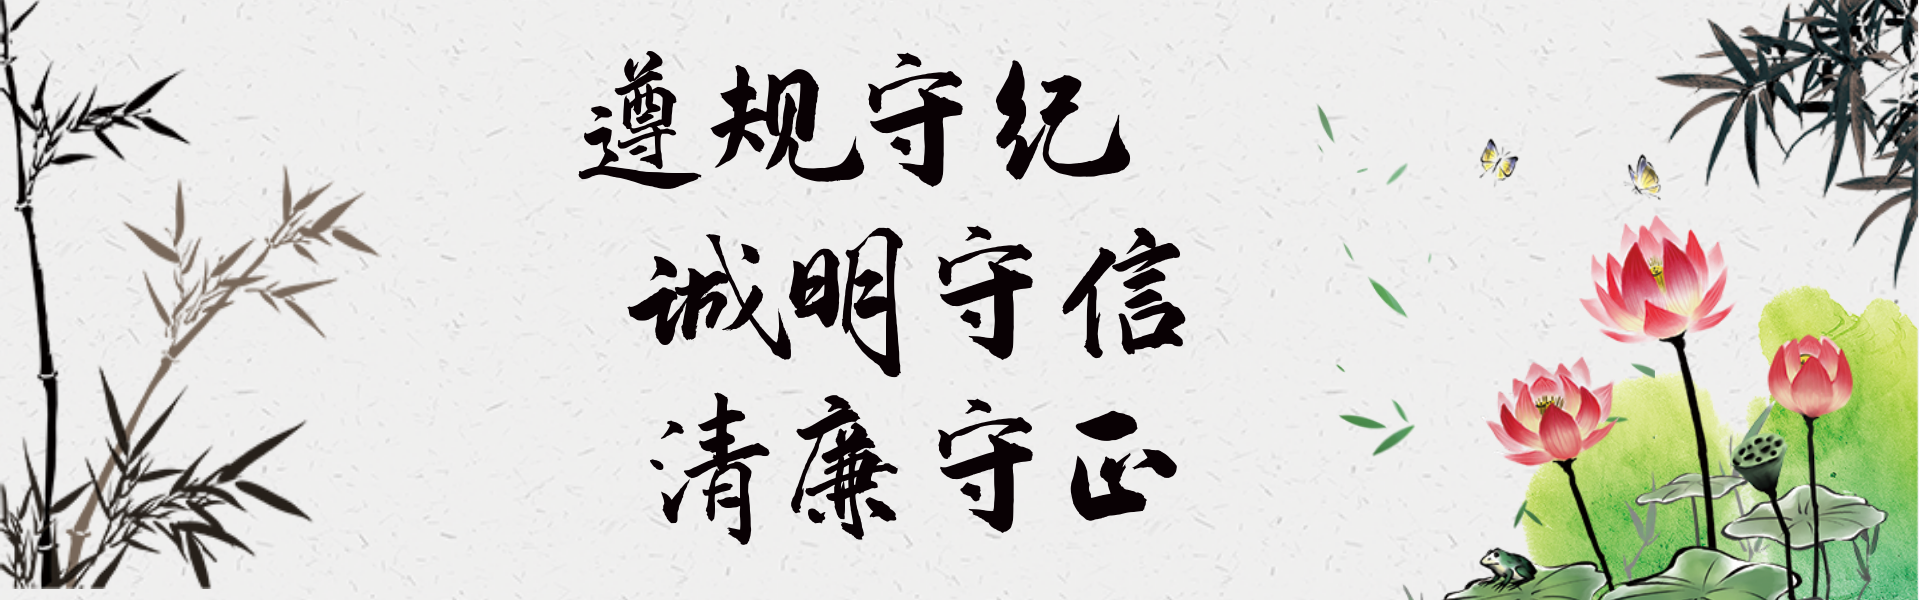 遵规守纪
诚明守信
清廉守正